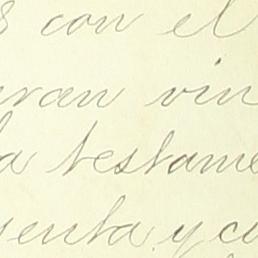 s con el
eran vin
la testame
senta y cu